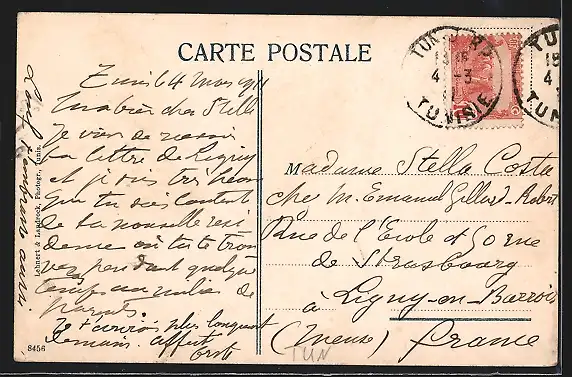 CARTE POSTALE
Tunis 4 Mars 911
Ma bien chère Stella
Je viens de recevoir
ta lettre de Ligny
et je suis très heureux
que tu sois contente
de ta nouvelle rési
dence où tu te trou
ves pendant quelque
temps au milieu de
parents.
Je t'écrirai plus longuement
demain. affect
Lehnert & Landrock, Photogr., Tunis.
8456
TUNIS R.P
4 -3
TUNISIE
TU
15
4
TUN
Madame Stella Costa
chez M. Emanuel Gillard-Robert
Rue de l'Ecole
de Strasbourg
à Ligny-en-Barrois
(Meuse) france
TUN